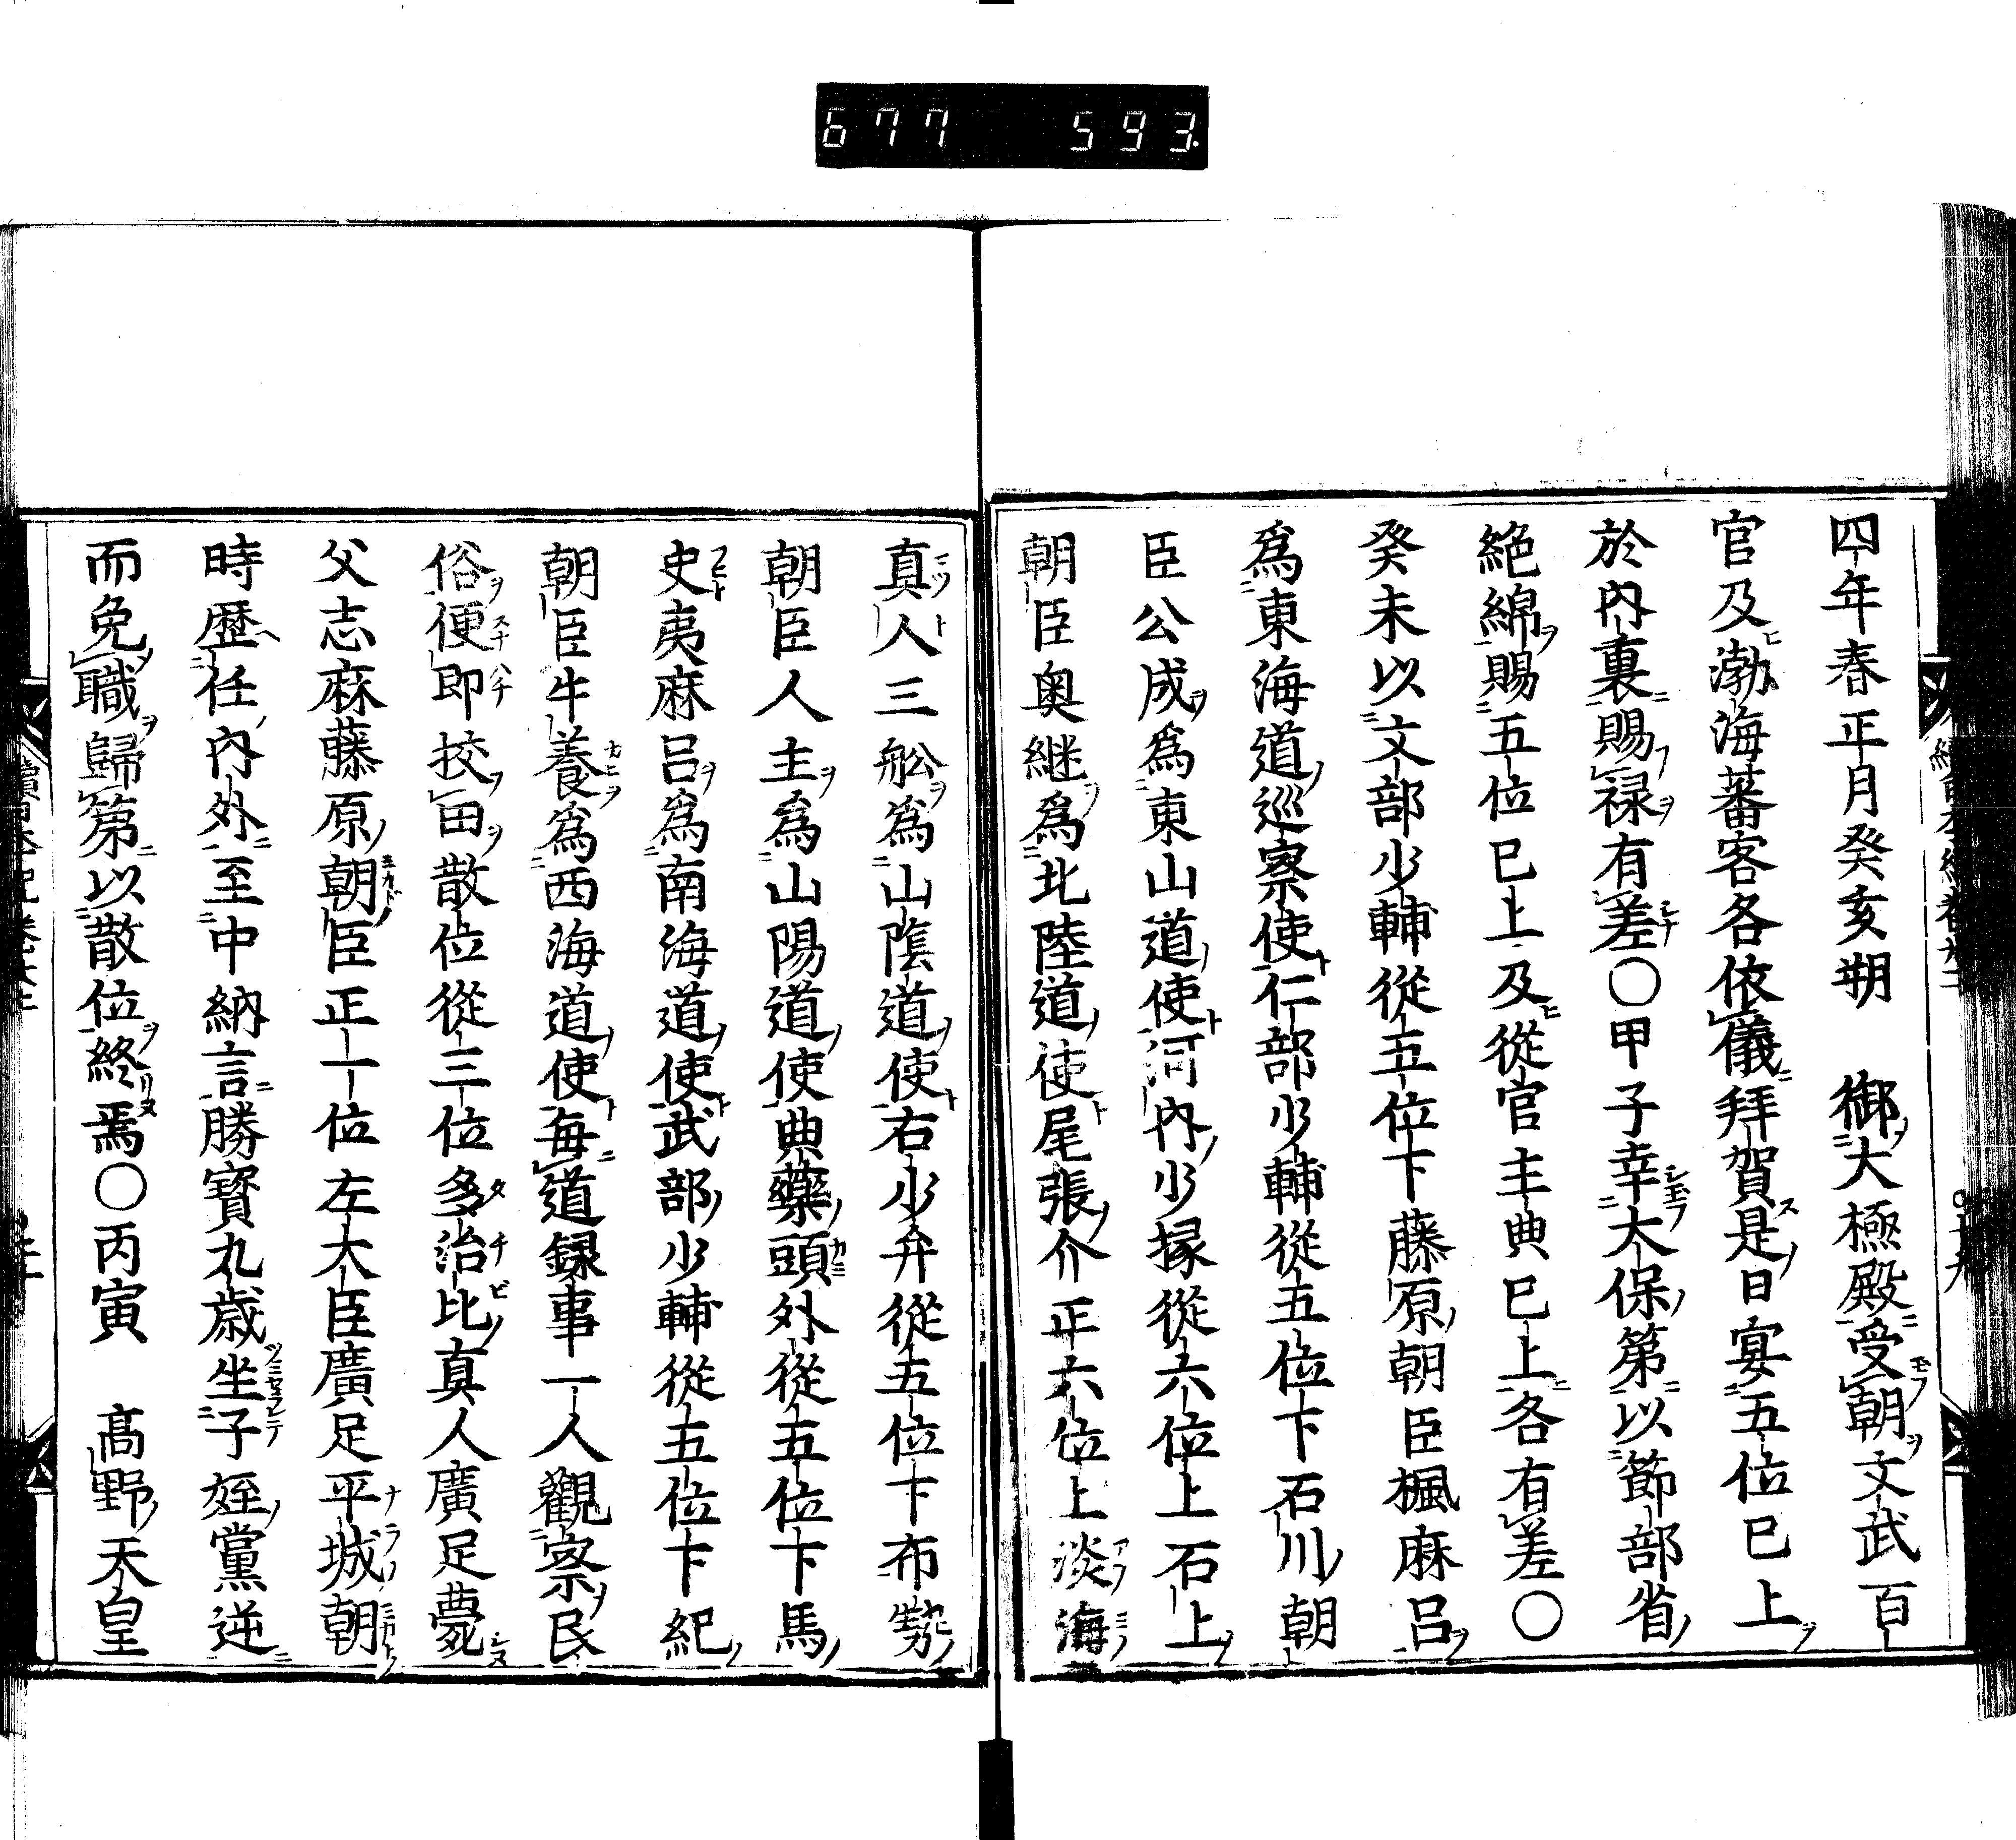 677 593.
四年春正月癸亥朔 御大極殿受朝文武百
官及渤海蕃客各依儀拜賀是日宴五位已上
於內裏賜禄有差○甲子幸大保第以節部省
絁綿賜五位已上及從官主典已上各有差○
癸未以文部少輔從五位下藤原朝臣楓麻呂
爲東海道巡察使仁部少輔從五位下石川朝
臣公成爲東山道使河內少掾從六位上石上
朝臣奥継爲北陸道使尾張介正六位上淡海
真人三舩爲山陰道使右少弁從五位下布勢
朝臣人主爲山陽道使典藥頭外從五位下馬
史夷麻呂爲南海道使武部少輔從五位下紀
朝臣牛養爲西海道使每道録事一人觀察民
俗便即挍田散位從三位多治比真人廣足薨
父志麻藤原朝臣正一位左大臣廣足平城朝
時歷任內外至中納言勝寳九歲坐子姪黨逆
而免職歸第以散位終焉○丙寅 髙野天皇